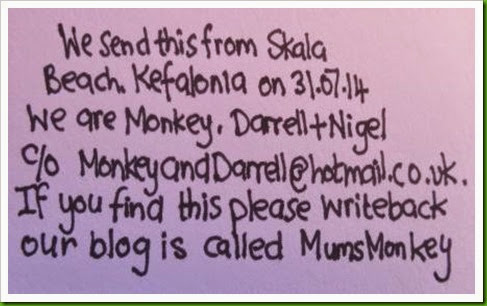 We send this from Skala
Beach. Kefalonia on 31.07.14
We are Monkey, Darrell+Nigel
c/o MonkeyandDarrell@hotmail.co.uk.
If you find this please writeback
our blog is called MumsMonkey